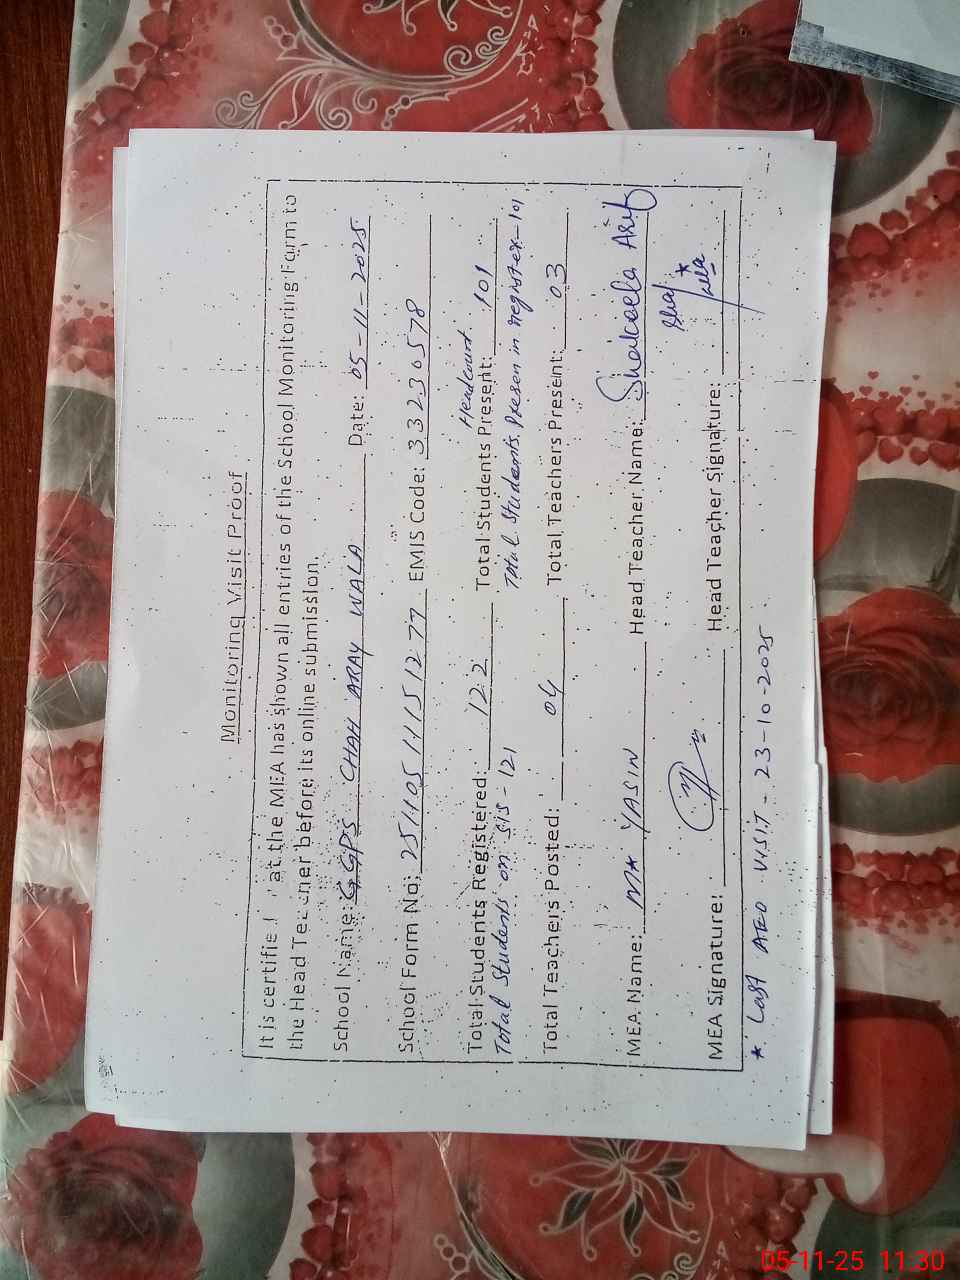 Monitoring Visit Proof
It is certified that the MEA has shown all entries of the School Monitoring Form to
the Head Teacher before its online submission.
School Name: GGPS CHAH ARAY WALA Date: 05-11-2025
School Form No: 25110511151277 EMIS Code: 33230578
Total Students Registered: 122 Total Students Present: Headcount 101
Total Students on SIS-121 Total Students Presen in register-101
Total Teachers Posted: 04 Total Teachers Present: 03
MEA Name: YASIN Head Teacher Name: Arif
MEA Signature: Head Teacher Signature:
* Last AEO VISIT- 23-10-2025
05-11-25 11:30